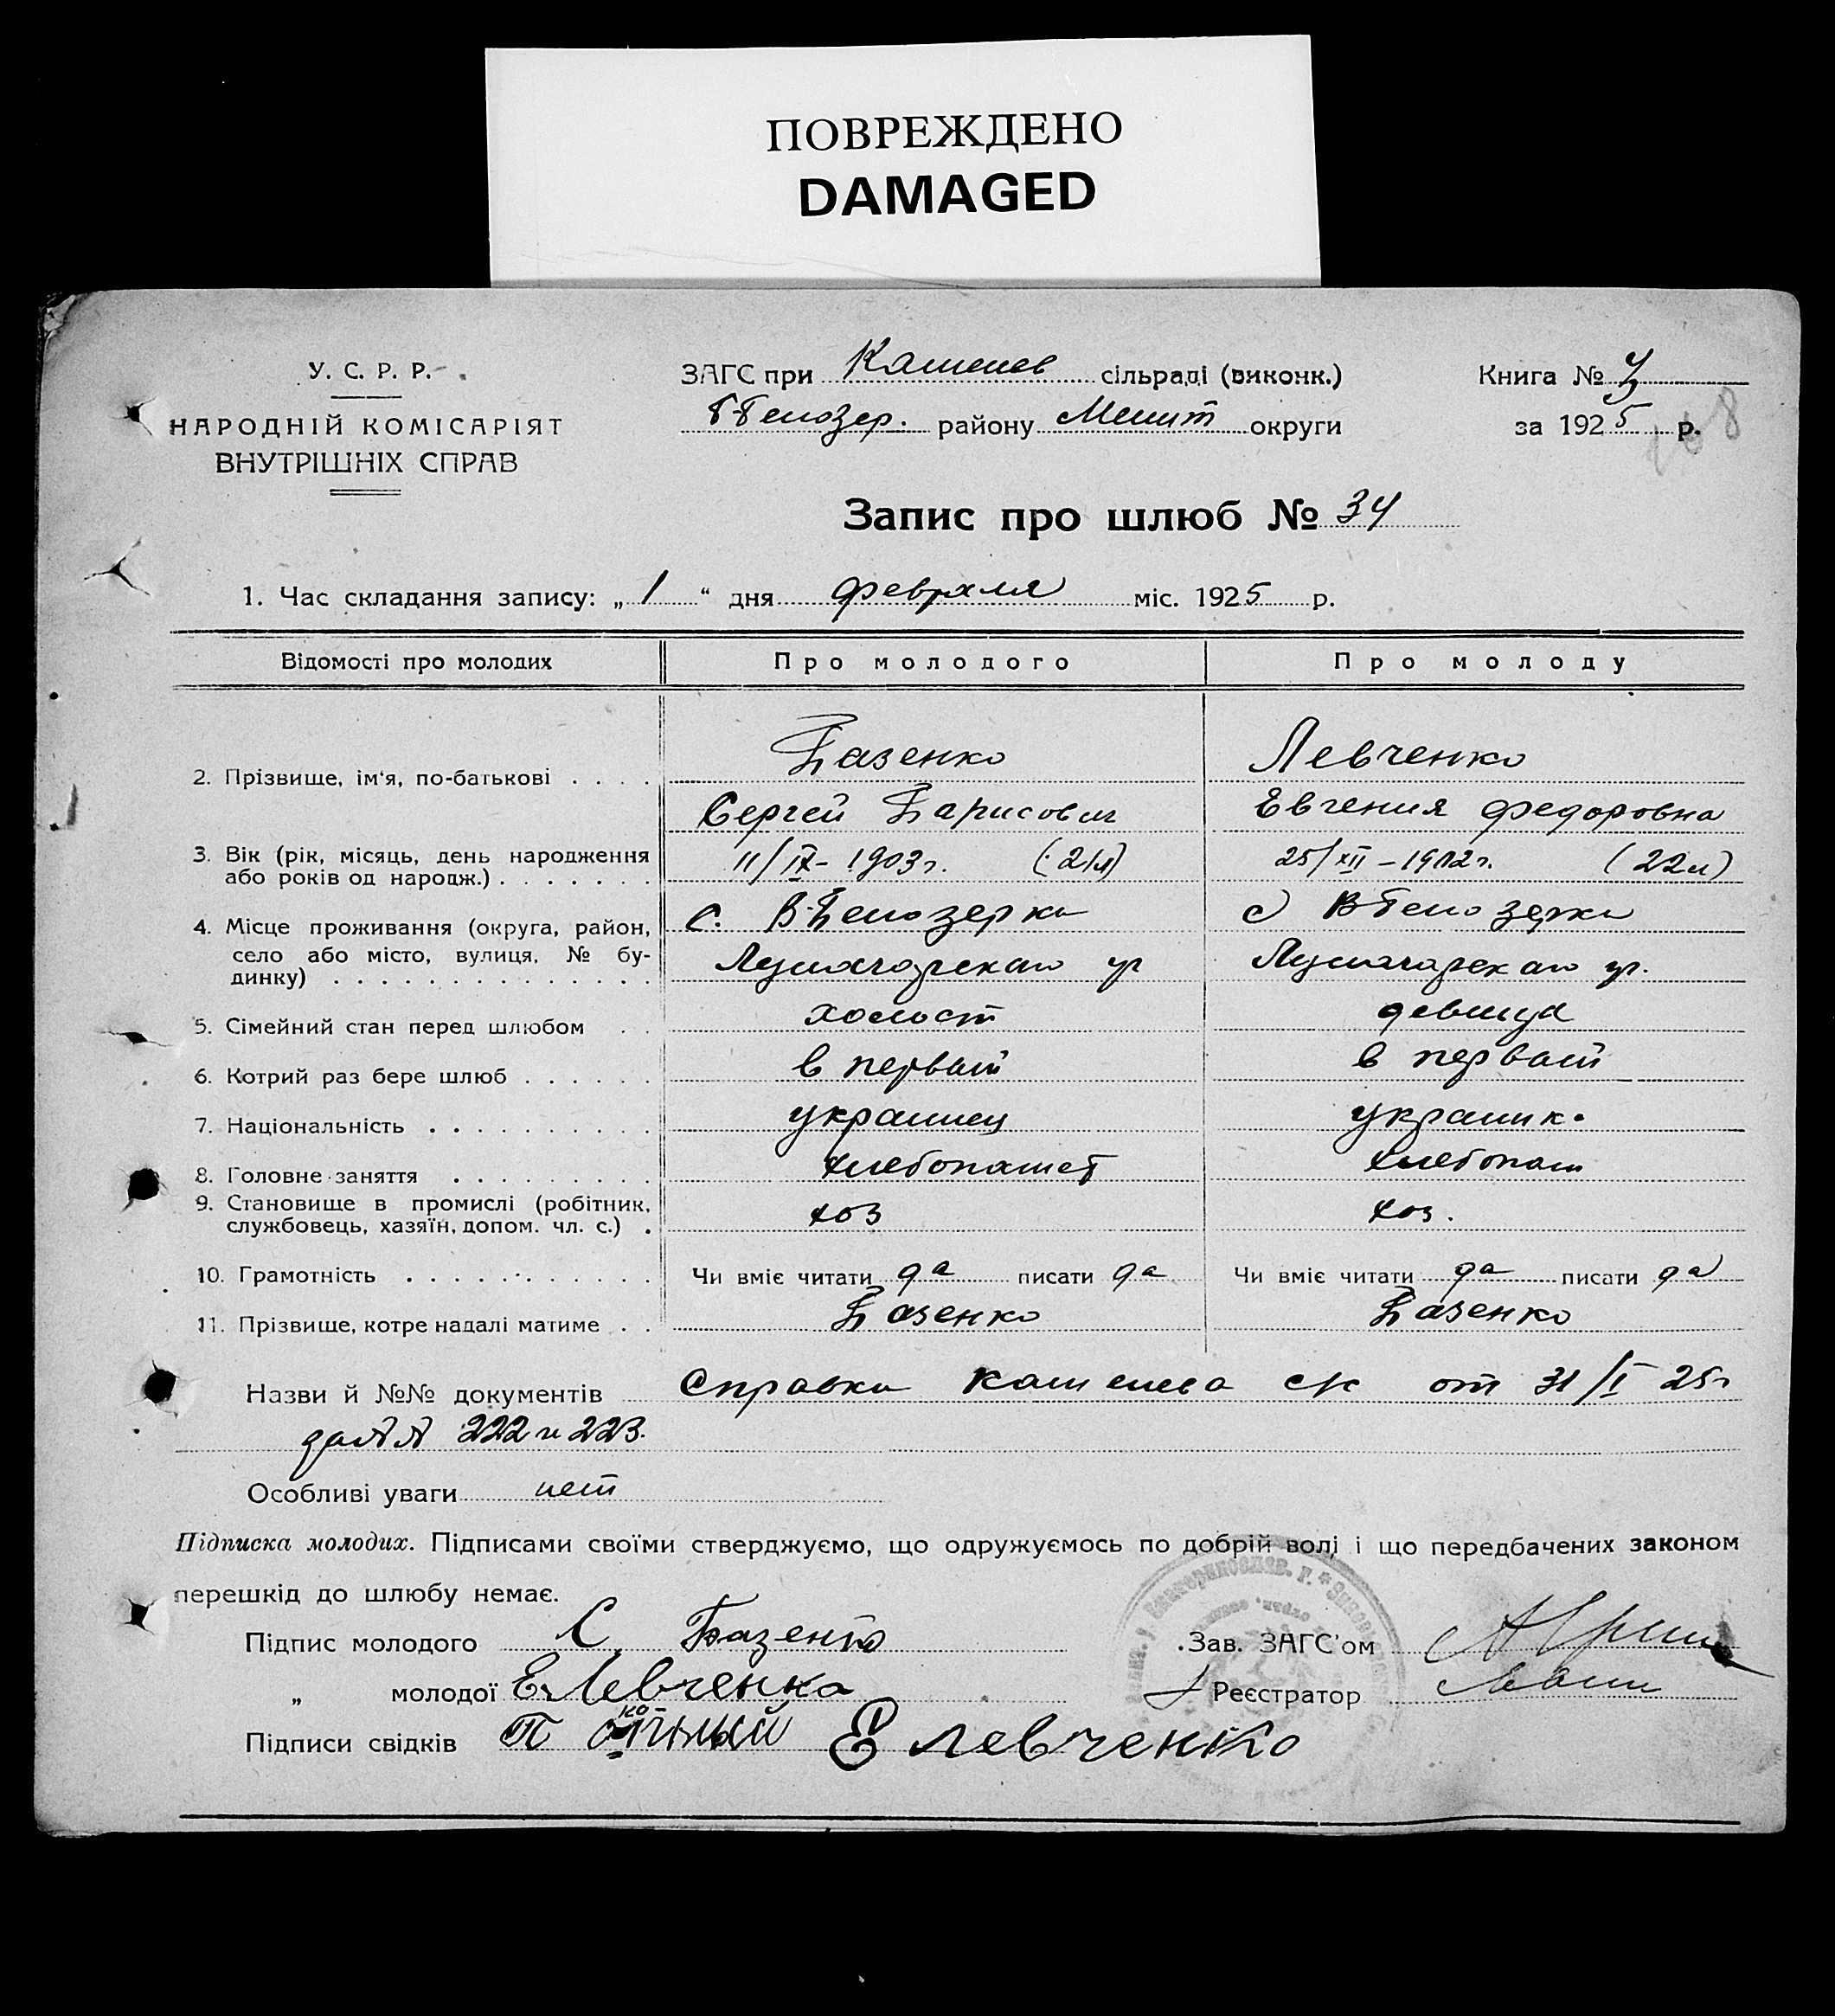 ПОВРЕЖДЕНО
DAMAGED
У. С. Р. Р.
НАРОДНІЙ КОМІСАРІЯТ
ВНУТРІШНІХ СПРАВ
ЗАГС при Кашелев сільраді (виконк.)
Б-Белозер. району Мелит округи
Книга №
за 1925 р.
168
Запис про шлюб № 34
1. Час складання запису: „ 1 “ дня февраля міс. 1925 р.
Відомості про молодих Про молодого Про молоду
2. Прізвище, ім'я, по-батькові . . . . Базенко Левченко
Сергей Барисович Евгения Федоровна
3. Вік (рік, місяць, день народження або років од народж.) . . . . . . . 11/IX - 1903 г. (21 л) 25/XII - 1902 г. (22 л)
4. Місце проживання (округа, район, село або місто, вулиця, № будинку) . . . . . . . . . . . . . . с. В-Белозерка с В-Белозерка
Луначарскаго ул Луначарскаго ул.
5. Сімейний стан перед шлюбом . . холост девица
6. Котрий раз бере шлюб . . . . . . в первый в первый
7. Національність . . . . . . . . . . украинец украинк.
8. Головне заняття . . . . . . . . . хлебопашет хлебопаш
9. Становище в промислі (робітник, службовець, хазяїн, допом. чл. с.) . хоз хоз.
10. Грамотність . . . . . . . . . . . Чи вміє читати да писати да Чи вміє читати да писати да
11. Прізвище, котре надалі матиме . . Базенко Базенко
Назви й №№ документів Справки Кашелева с/к от 31/I 25 г
за №№ 222 и 223.
Особливі уваги нет
Підписка молодих. Підписами своїми стверджуємо, що одружуємось по добрій волі і що передбачених законом
перешкід до шлюбу немає.
Підпис молодого С Базенко Зав. ЗАГС'ом
„ молодої Е Левченко Реєстратор
Підписи свідків П Е Левченко